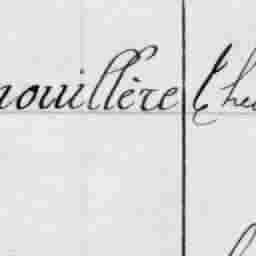 nouillère The